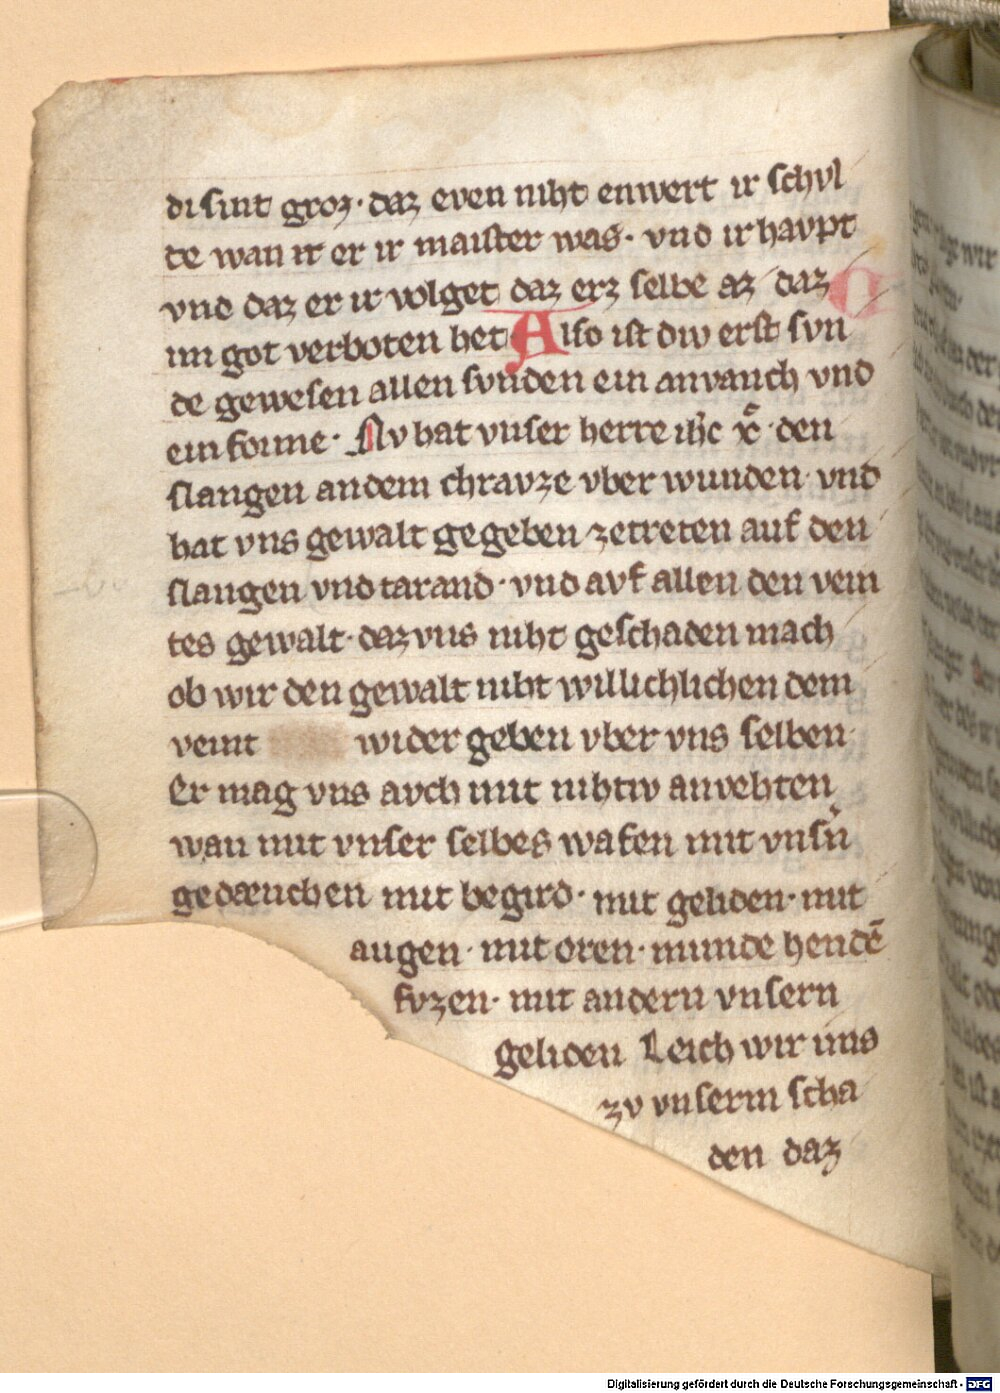 di sint groz· daz even niht enwert ir schvl
de wan er er ir maister was· vnd ir havpt
vnd daz er ir volget daz erz selbe az daz
im got verboten het Also ist div erst svn
de gewesen allen svnden ein anvanch vnd
ein forme· Nv hat vnser herre ihc xc· den
slangen an dem chravze vber wunden· vnd
hat vns gewalt gegeben zetreten auf den
slangen vnd tarand· vnd avf allen den vein
tes gewalt· daz vns niht geschaden mach
ob wir den gewalt niht willichlichen dem
veint wider geben vber vns selben·
Er mag vns avch mit nihtiv anvehten
wan mit vnser selbes wafen mit vnsn
gedænchen mit begird· mit geliden· mit
augen· mit oren· munde hendē
fvzen· mit andern vnsern
geliden Leich wir ims
zv vnserm scha
den daz
Digitalisierung gefördert durch die Deutsche Forschungsgemeinschaft - DFG